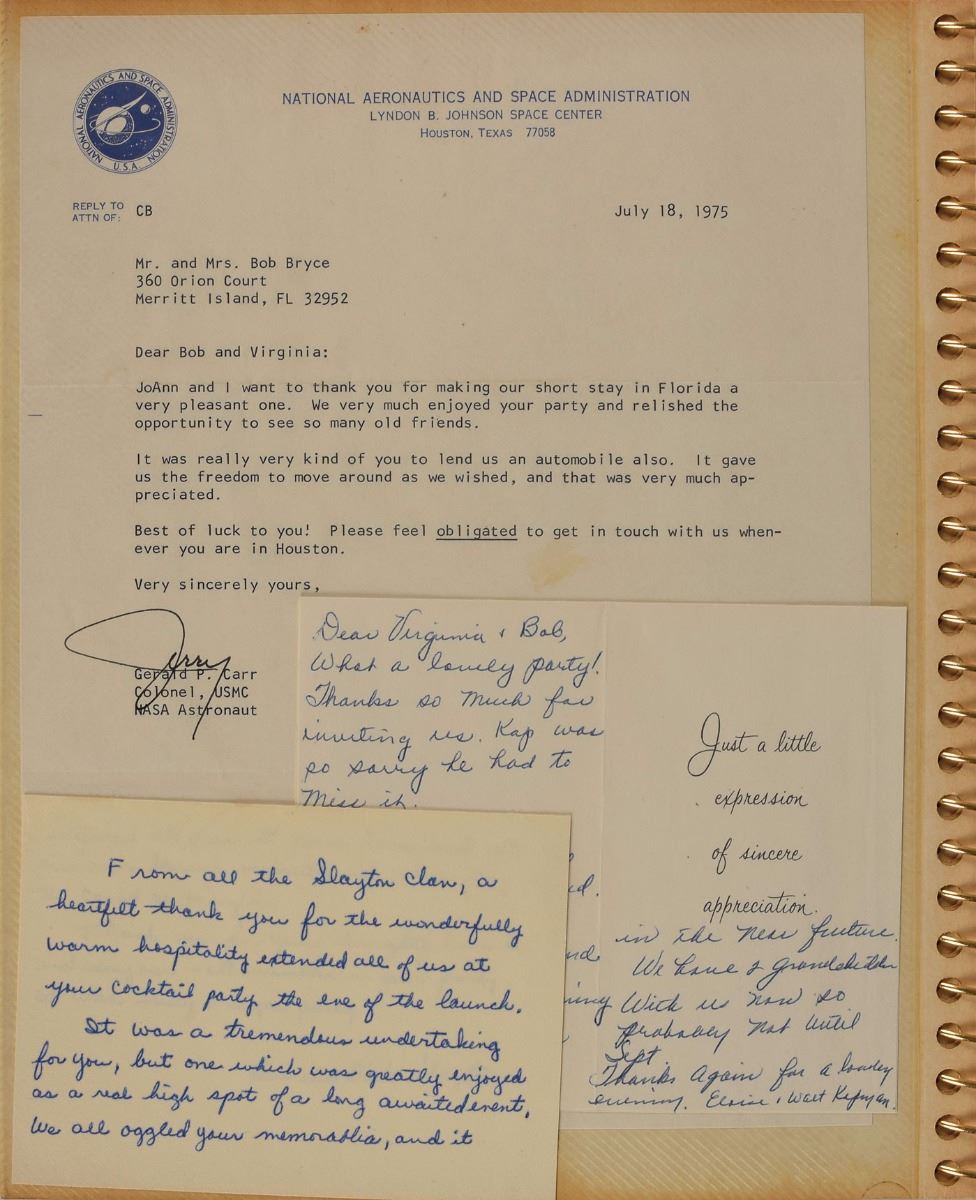 NATIONAL AERONAUTICS AND SPACE ADMINISTRATION
U.S.A.
NATIONAL AERONAUTICS AND SPACE ADMINISTRATION
LYNDON B. JOHNSON SPACE CENTER
HOUSTON, TEXAS 77058
REPLY TO
ATTN OF: CB
July 18, 1975
Mr. and Mrs. Bob Bryce
360 Orion Court
Merritt Island, FL 32952
Dear Bob and Virginia:
JoAnn and I want to thank you for making our short stay in Florida a
very pleasant one. We very much enjoyed your party and relished the
opportunity to see so many old friends.
It was really very kind of you to lend us an automobile also. It gave
us the freedom to move around as we wished, and that was very much ap-
preciated.
Best of luck to you! Please feel obligated to get in touch with us when-
ever you are in Houston.
Very sincerely yours,
Jerry
Gerald P. Carr
Colonel, USMC
NASA Astronaut
Dear Virginia & Bob,
What a lovely party!
Thanks so much for
inviting us. Kap was
so sorry he had to
miss it.
Just a little
expression
of sincere
appreciation.
in the near future.
We have 2 grandchildren
With us now so
probably not until
Sept
Thanks again for a lovely
evening. Eloise & Walt
From all the Slayton clan, a
heartfelt thank you for the wonderfully
warm hospitality extended all of us at
your cocktail party the eve of the launch.
It was a tremendous undertaking
for you, but one which was greatly enjoyed
as a real high spot of a long awaited event.
We all oggled your memorablia, and it